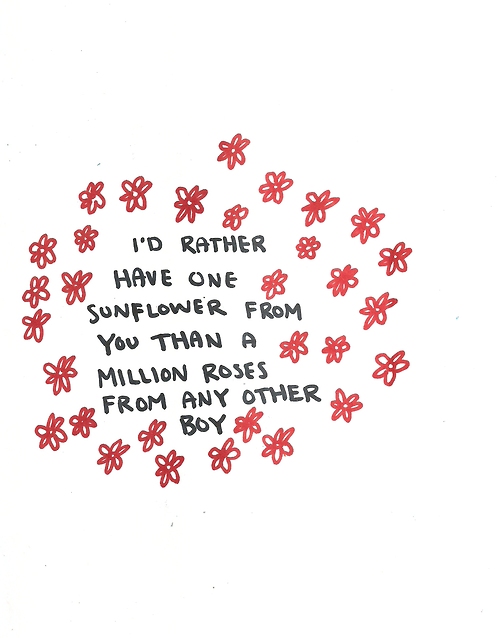 I'D RATHER
HAVE ONE
SUNFLOWER FROM
YOU THAN A
MILLION ROSES
FROM ANY OTHER
BOY